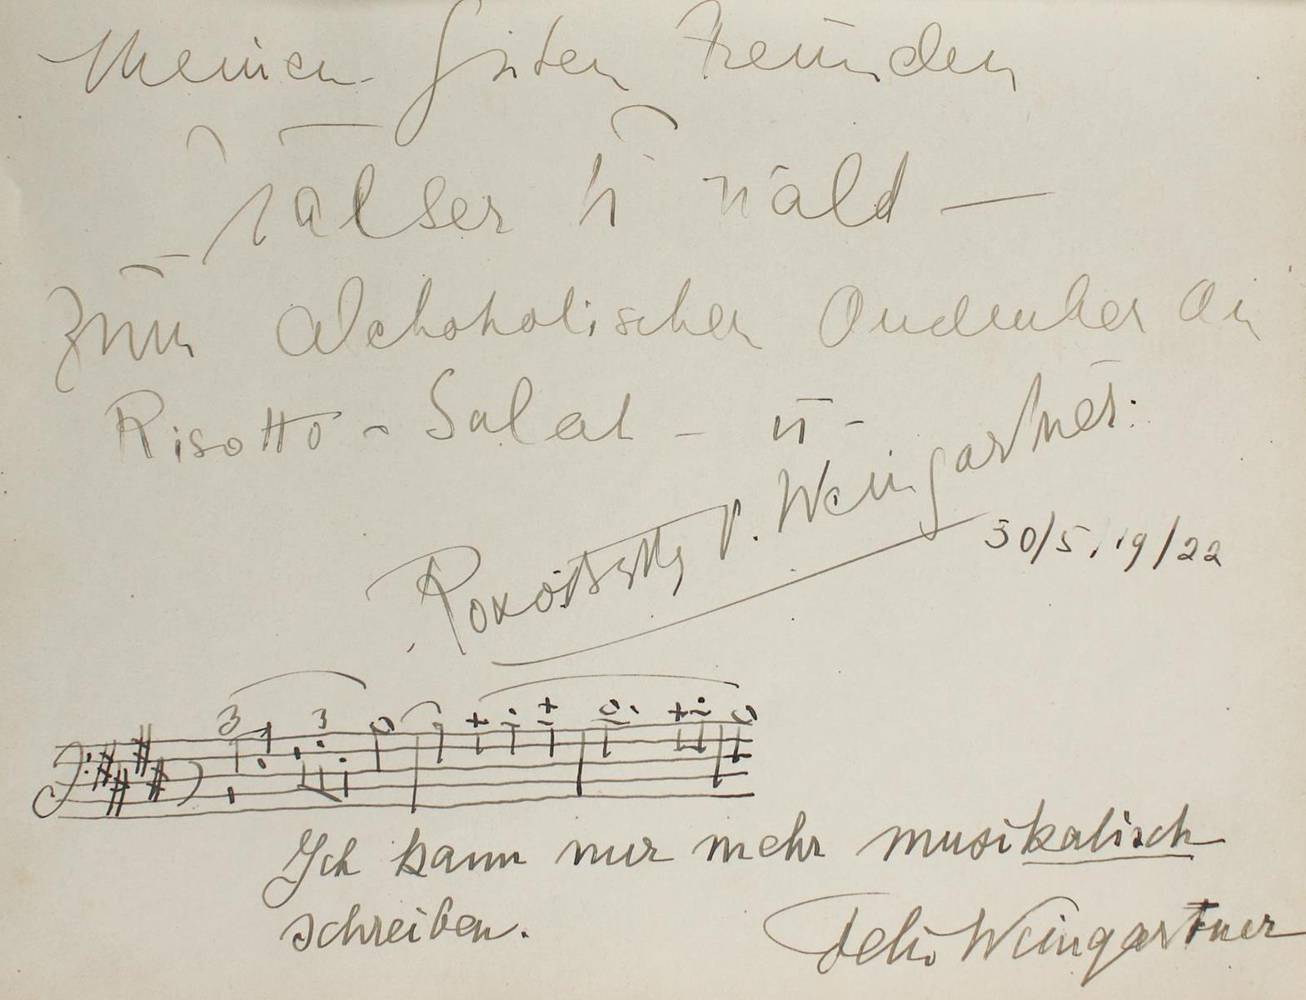 Meinen guten Freunden
ü Wald —
zum alchoholischen Andenken an
Risotto - Salat - ü -
Roxo v. Weingartner.
30/5. 19/22
3 3
Ich kann nur mehr musikalisch
schreiben.
Felix Weingartner